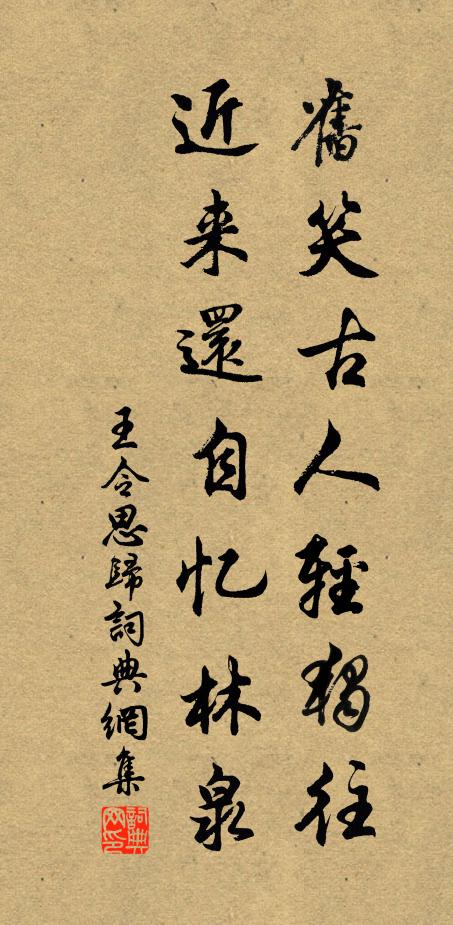 舊笑古人輕獨往
近来還自忆林泉
王令思歸詞典網集
詞典網印